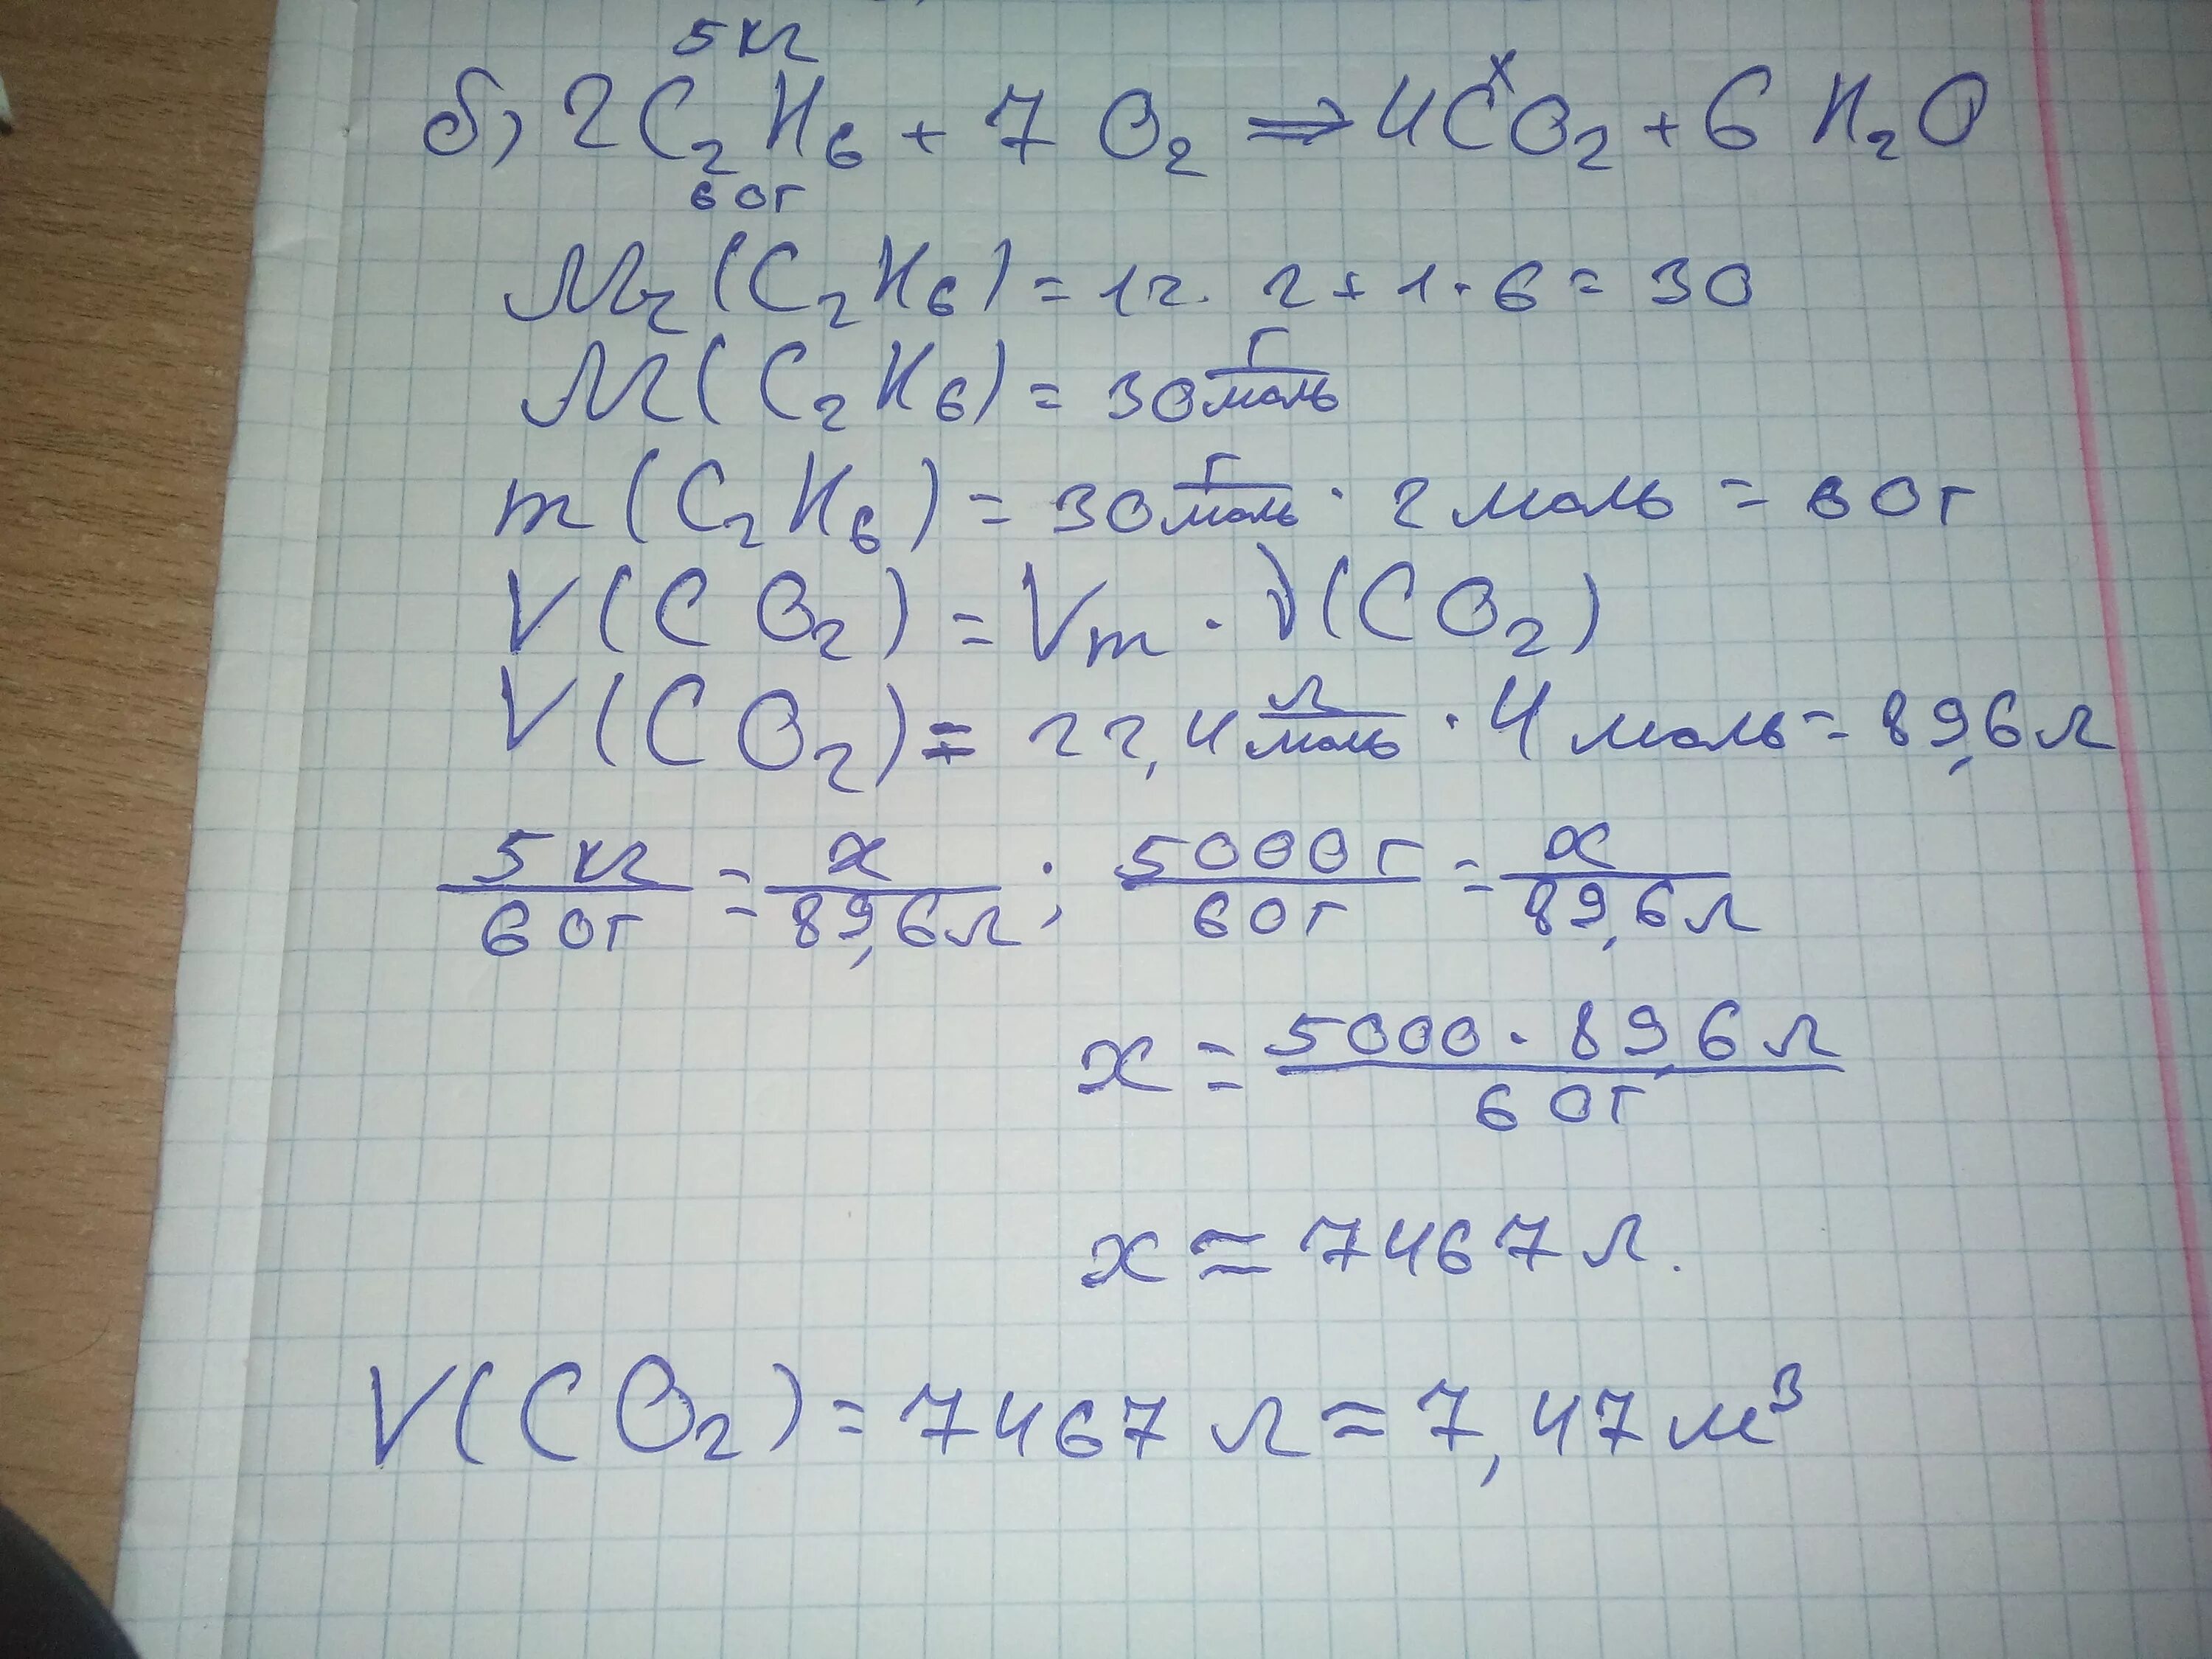 5 кг
х
б) 2C₂H₆ + 7 O₂ ⇒ 4CO₂ + 6 H₂O
60г
Mr (C₂H₆) = 12 · 2 + 1 · 6 = 30
M (C₂H₆) = 30 г/моль
m (C₂H₆) = 30 г/моль · 2 моль = 60г
V (CO₂) = Vm · ν(CO₂)
V (CO₂) = 22,4 л/моль · 4 моль = 89,6 л
5 кг/60г = x/89,6 л ; 5000г/60г = x/89,6 л
x = 5000 · 89,6 л/60г
x ≈ 7467 л.
V(CO₂) = 7467 л = 7,47 м³